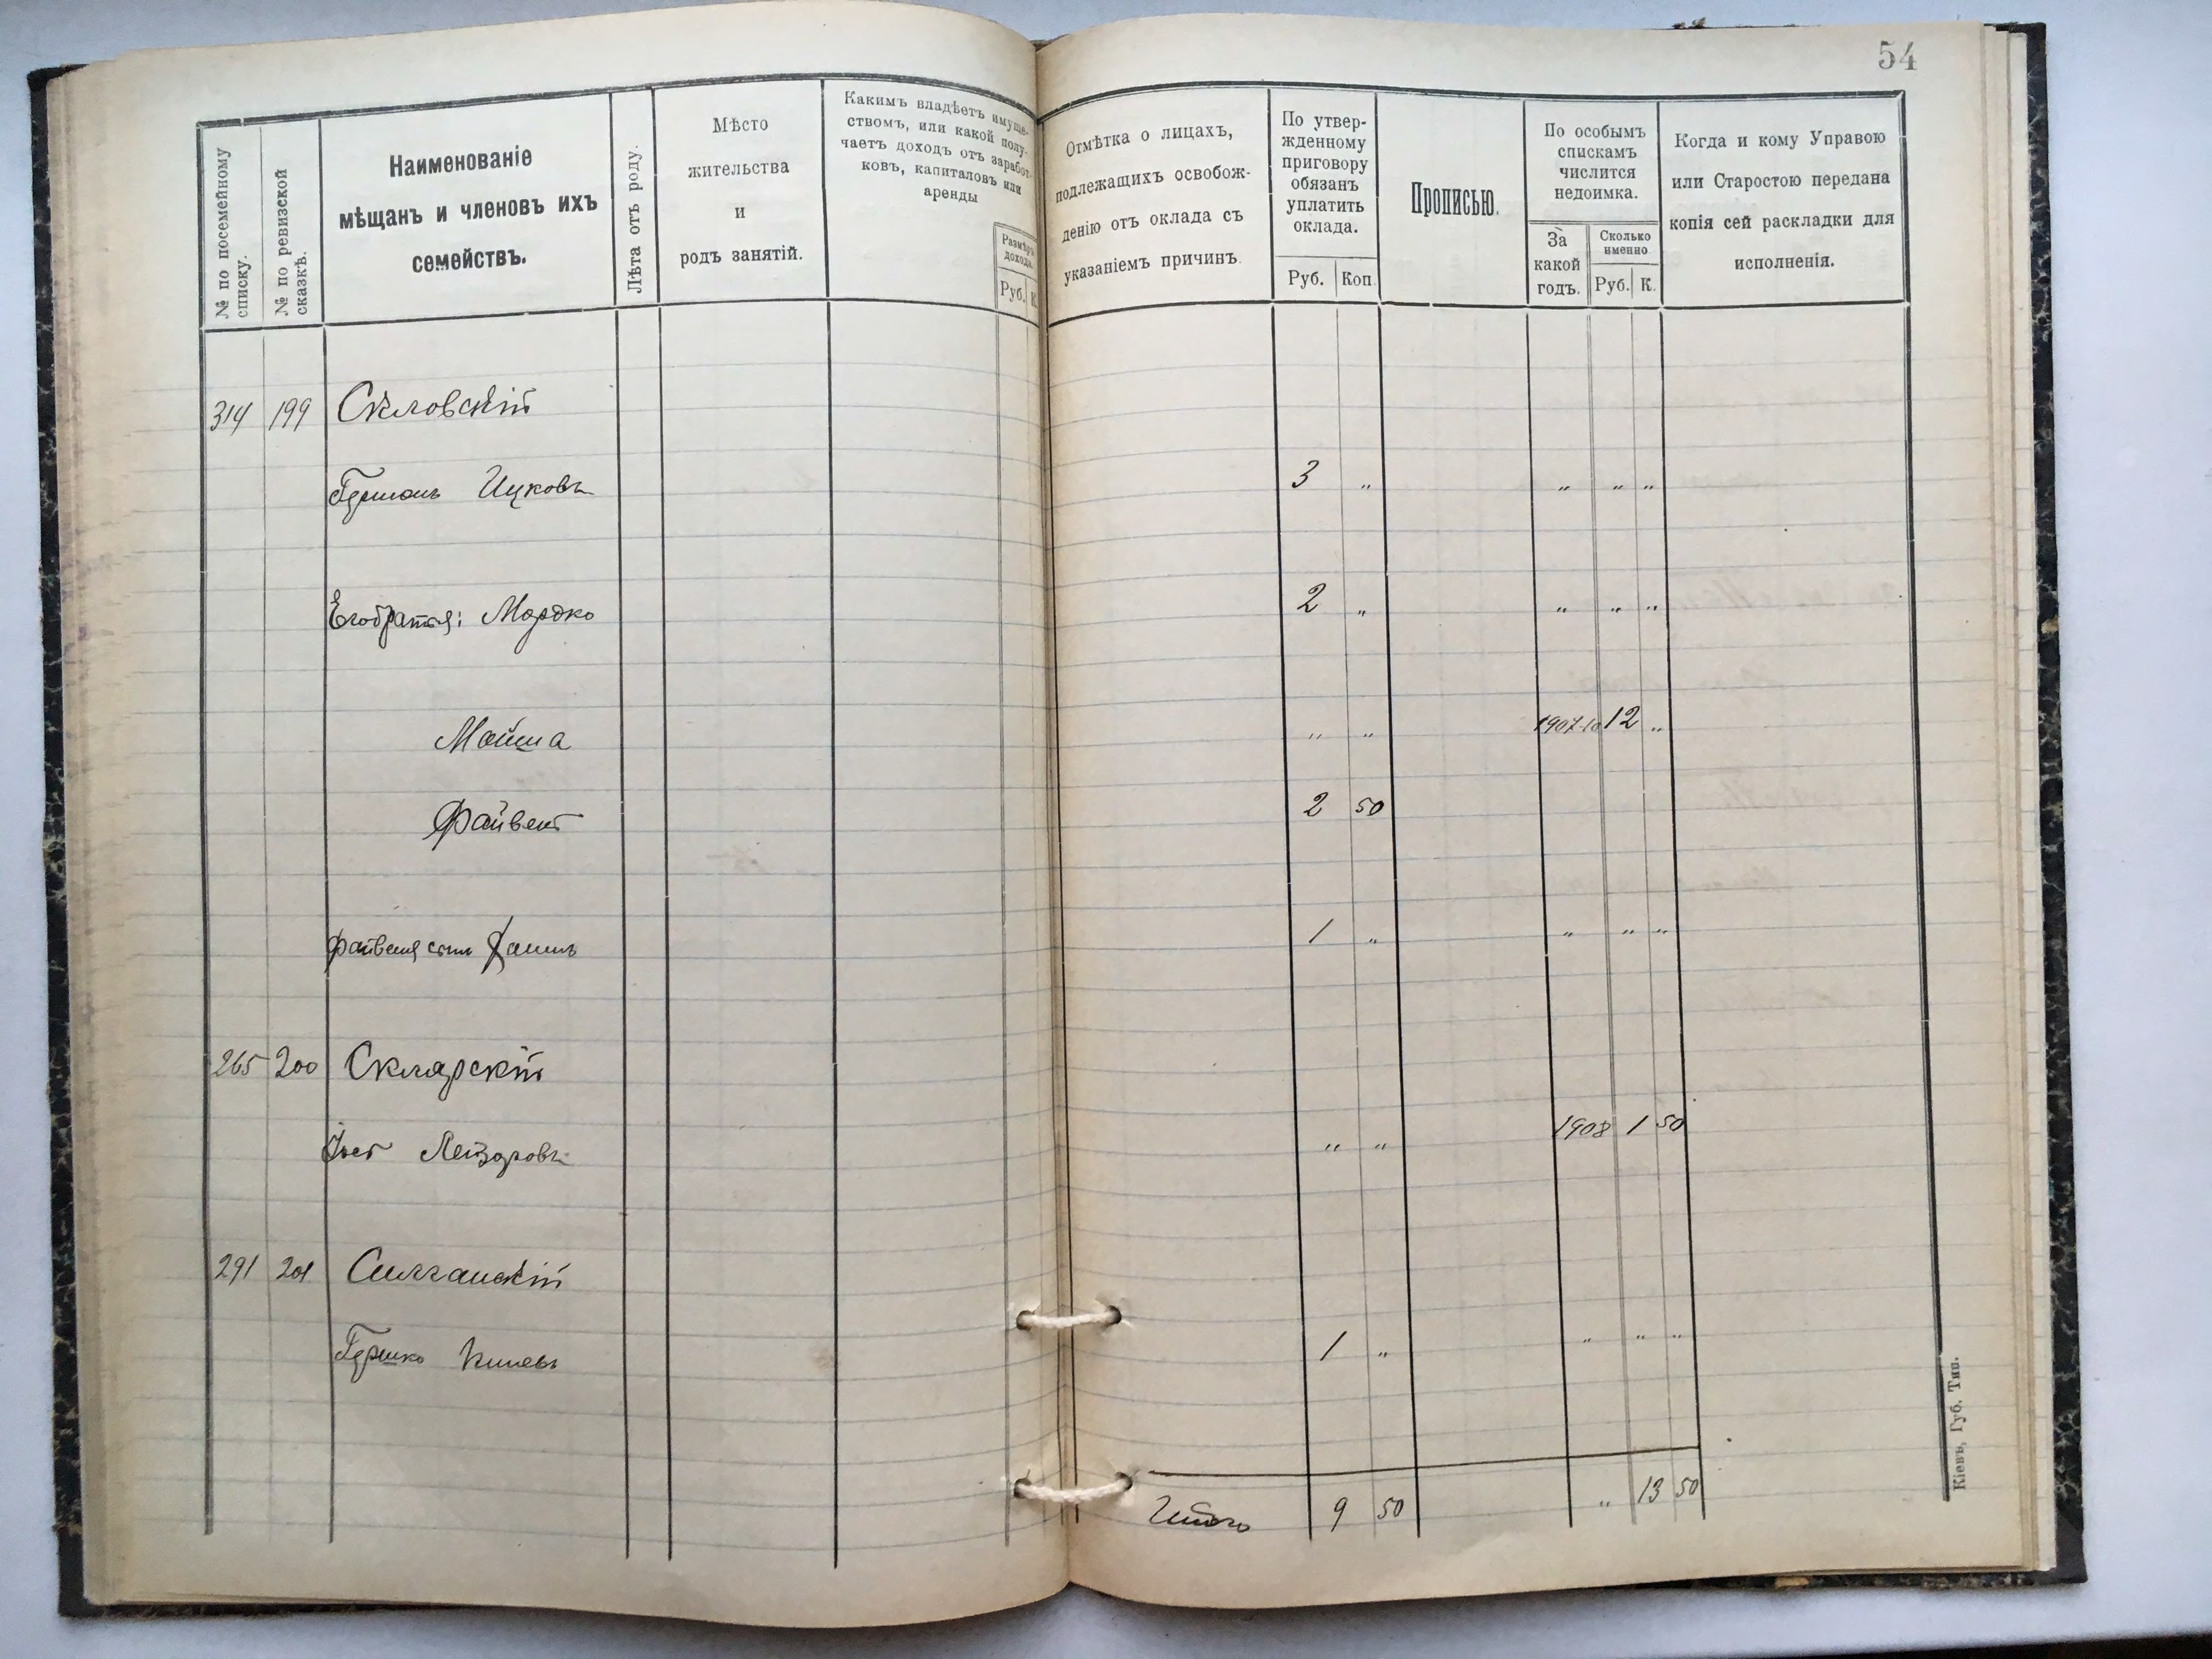 54
№ по посемейному
списку.
№ по ревизской
сказкѣ.
Наименованіе
мѣщанъ и членовъ ихъ
семействъ.
Лѣта отъ роду.
Мѣсто
жительства
и
родъ занятій.
Какимъ владѣетъ имуще-
ствомъ, или какой полу-
чаетъ доходъ отъ заработ-
ковъ, капиталовъ или
аренды
Размѣръ
дохода.
Руб. К.
Отмѣтка о лицахъ,
подлежащихъ освобож-
денію отъ оклада съ
указаніемъ причинъ.
По утвер-
жденному
приговору
обязанъ
уплатить
оклада.
Руб. Коп.
Прописью.
По особымъ
спискамъ
числится
недоимка.
За
какой
годъ.
Сколько
именно
Руб. К.
Когда и кому Управою
или Старостою передана
копія сей раскладки для
исполненія.
314 199
Гершонъ Ицковъ 3 „ „ „ „
Его братья: Мордко 2 „ „ „ „
Мойша „ „ 1907-10 12 „
Файвель 2 50
Файвеля сынъ 1 „ „ „ „
265 200 Склярскій
Лейзоровъ „ „ 1908 1 50
291 201
Гершко 1 „ „ „ „
Итого 9 50 „ 13 50
Кіевъ, Губ. Тип.